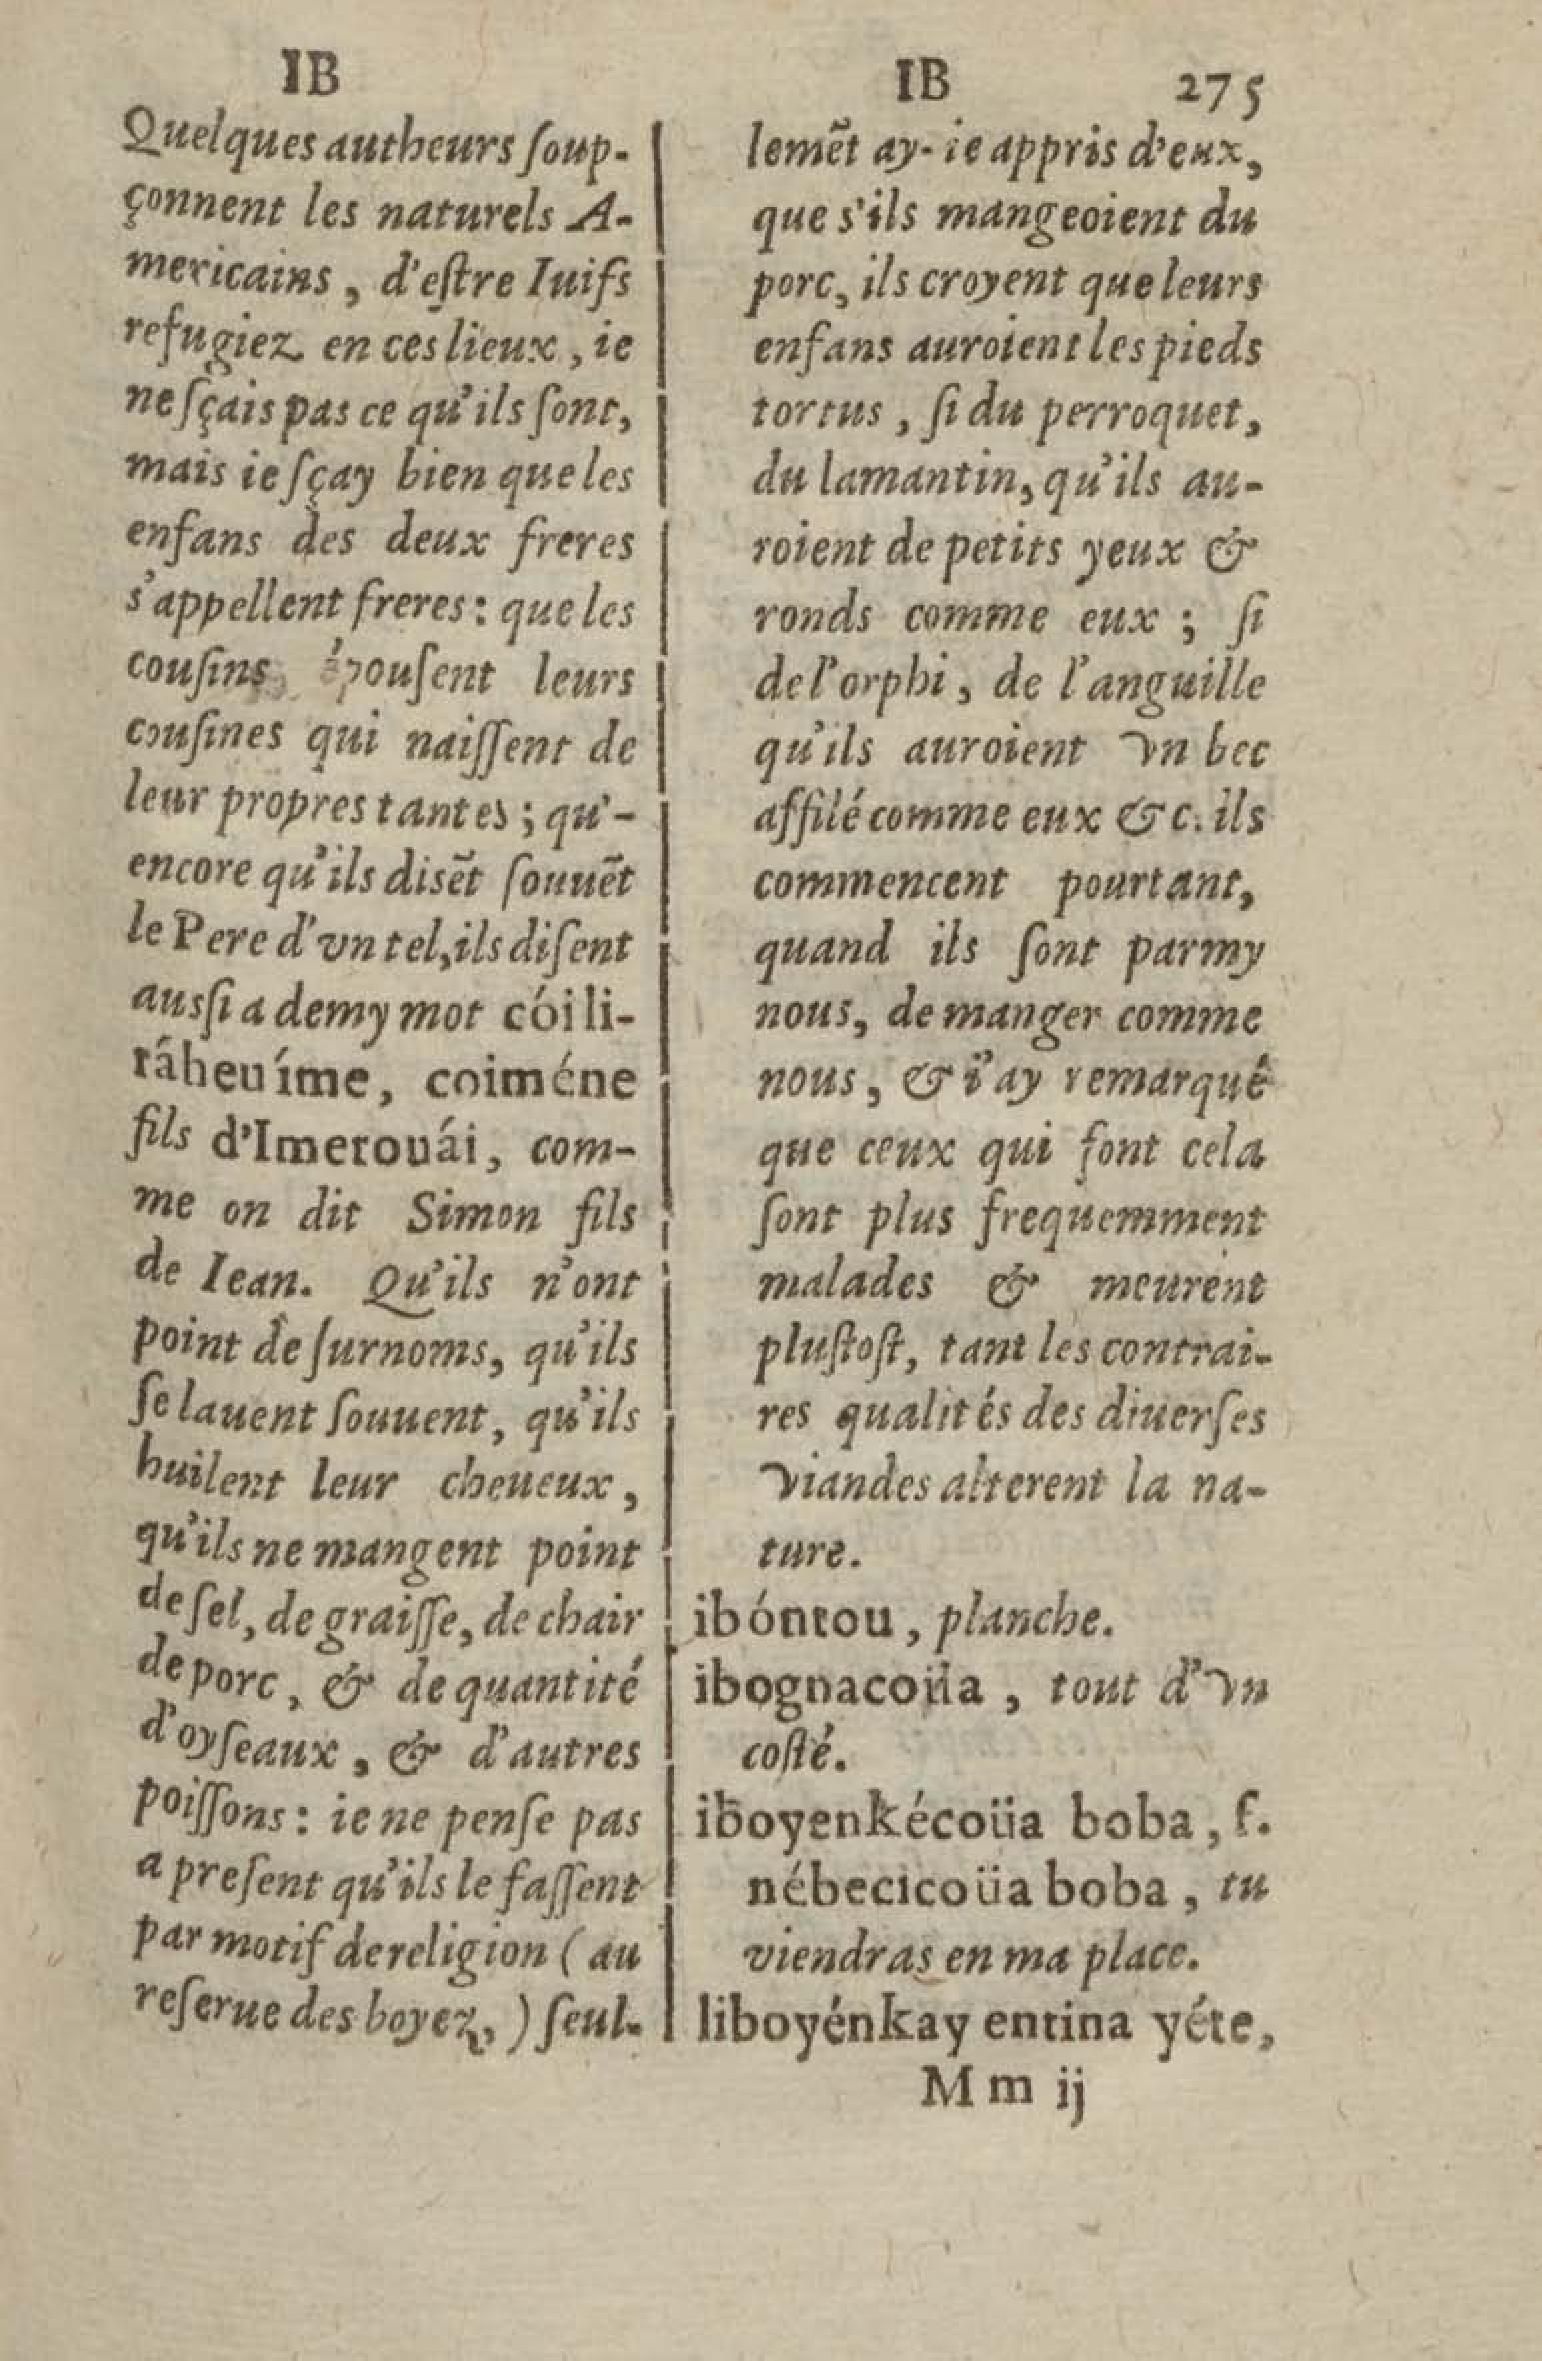 IB
Quelques autheurs ſoup-
çonnent les naturels A-
mericains, d'eſtre Iuifs
refugiez en ces lieux, ie
ne ſçais pas ce qu'ils ſont,
mais ie ſçay bien que les
enfans des deux freres
s'appellent freres: que les
couſins épouſent leurs
couſines qui naiſſent de
leur propres tantes; qu'-
encore qu'ils disẽt ſouuẽt
le Pere d'vn tel, ils diſent
ausſi a demy mot cói li-
ráheuíme, coiméne
fils d'Imerouái, com-
me on dit Simon fils
de Iean. Qu'ils n'ont
point de ſurnoms, qu'ils
ſe lauent ſouuent, qu'ils
huilent leur cheueux,
qu'ils ne mangent point
de ſel, de graiſſe, de chair
de porc, & de quantité
d'oyſeaux, & d'autres
poiſſons: ie ne penſe pas
a preſent qu'ils le faſſent
par motif de religion (au
reſerue des boyez,) ſeul-
IB 275
lemẽt ay-ie appris d'eux,
que s'ils mangeoient du
porc, ils croyent que leurs
enfans auroient les pieds
tortus, ſi du perroquet,
du lamantin, qu'ils au-
roient de petits yeux &
ronds comme eux; ſi
de l'orphi, de l'anguille
qu'ils auroient vn bec
affilé comme eux &c. ils
commencent pourtant,
quand ils ſont parmy
nous, de manger comme
nous, & i'ay remarqué
que ceux qui font cela
ſont plus frequemment
malades & meurent
pluſtoſt, tant les contrai-
res qualités des diuerſes
viandes alterent la na-
ture.
ibóntou, planche.
ibognacoüa, tout d'vn
coſté.
iboyenkécoüa boba, f.
nébecicoüa boba, tu
viendras en ma place.
liboyénkay entina yéte,
Mm ij